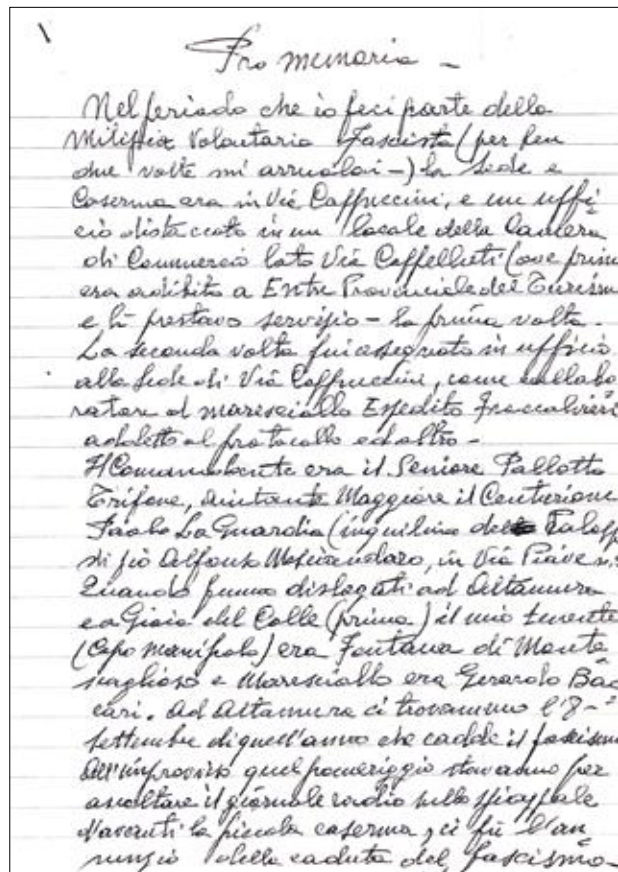 Pro memoria -
Nel periodo che io feci parte della
Milizia Volontaria Fascista (per ben
due volte mi arruolai -) la Sede e
Caserma era in Via Cappuccini, e un uffi
cio distaccato in un locale della Camera
di Commercio lato Via Cappelluti (ove prim
era adibito a Ente Provinciale del Turism
e lì prestavo servizio - la prima volta.
La seconda volta fui assegnato in ufficio
alla Sede di Via Cappuccini, come collabo
ratore al maresciallo Espedito
addetto al protocollo ed altro -
Il Comandante era il Seniore Pallotta
Trifone, aiutante Maggiore il Centurione
Paolo La Guardia (inquilino del Palazz
di zio Alfonso in Via Piave n.
Quando fummo dislocati ad Altamura
e a Gioia del Colle (prima) il mio tenente
(Capo Manipolo) era Fontana di Monte
scaglioso e Maresciallo era Gerardo Bac
cari. Ad Altamura ci trovammo l'8-
settembre di quell'anno che cadde il fascism
All'improvviso quel pomeriggio stavamo per
ascoltare il giornale radio sullo spiazzale
davanti la piccola caserma, ci fu l'an
nunzio della caduta del fascismo -